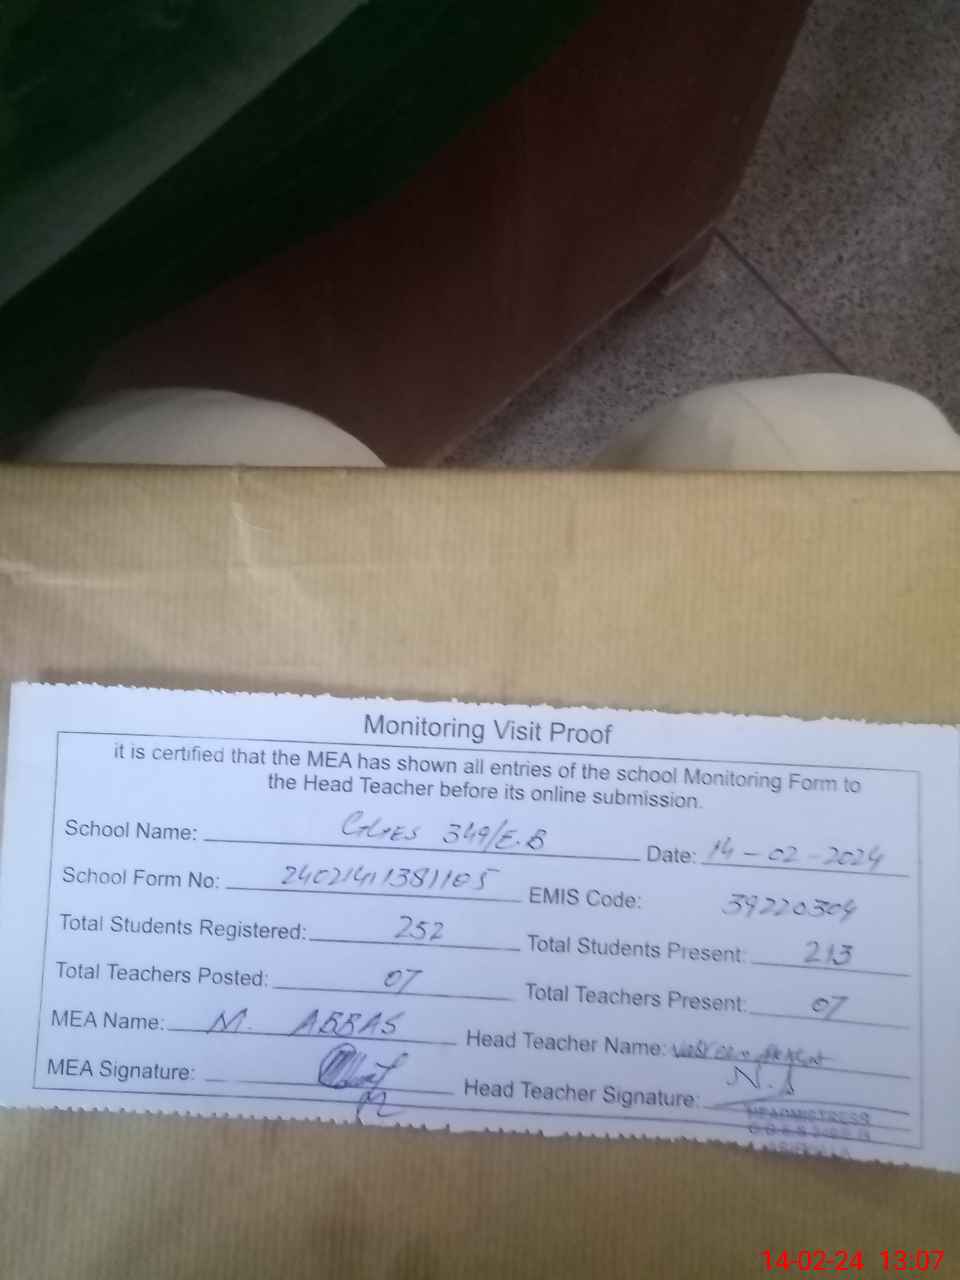 Monitoring Visit Proof
it is certified that the MEA has shown all entries of the school Monitoring Form to
the Head Teacher before its online submission.
School Name: GGES 349/E.B Date: 14-02-2024
School Form No: EMIS Code: 39220304
Total Students Registered: 252 Total Students Present: 213
Total Teachers Posted: 07 Total Teachers Present: 07
MEA Name: M. ABBAS Head Teacher Name:
MEA Signature: Head Teacher Signature:
HEADMISTRESS
14-02-24 13:07